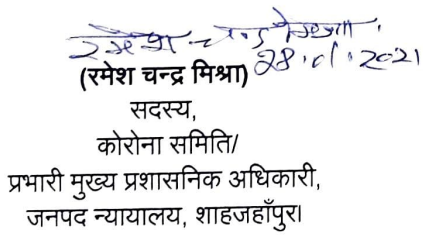 रमेश चन्द्र मिश्रा
28.01.2021
(रमेश चन्द्र मिश्रा)
सदस्य,
कोरोना समिति/
प्रभारी मुख्य प्रशासनिक अधिकारी,
जनपद न्यायालय, शाहजहाँपुर।